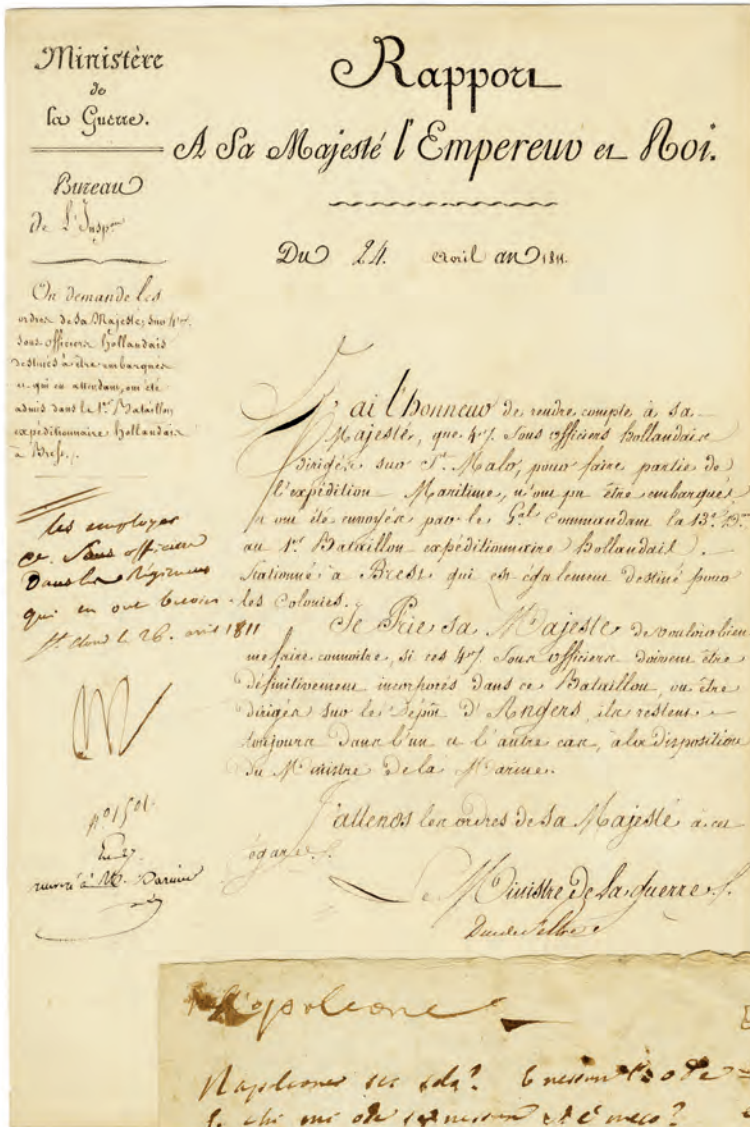 Ministère
de
la Guerre.
Bureau
de L'Insp.on
On demande les
ordres de Sa Majesté, sur 47.
sous officiers hollandais
destinés à être embarqués
et qui en attendant, ont été
admis dans le 1er Bataillon
expéditionnaire hollandais
à Brest./.
les employer
ce. Sous officiers
Dans les Régimens
qui en ont besoin
St Cloud le 26. avril 1811
N
n° 1501.
renvoé à M.
Rapport
A Sa Majesté l'Empereur et Roi.
Du 24. Avril an 1811.
J'ai l'honneur de rendre compte à sa
Majesté, que 47. Sous officiers hollandais
dirigés sur St. Malo, pour faire partie de
l'expédition Maritime, n'ont pu être embarqués,
et ont été envoyés par le Gal. Commandant la 13e Don
au 1er Bataillon expéditionnaire hollandais.
stationné à Brest qui est également destiné pour
les Colonies.
Je Prie sa Majesté de vouloir bien
me faire connoitre, si ces 47. Sous officiers doivent être
définitivement incorporés dans ce Bataillon, ou être
dirigés sur le Dépôt d'Angers, ils restent
toujours dans l'un et l'autre cas, à la disposition
du Ministre de la Marine.
J'attends les ordres de sa Majesté à cet
égard./.
Le Ministre de la guerre./.
Duc de Feltre
Napoleone
Napleones sei sola? E nessun t'ode